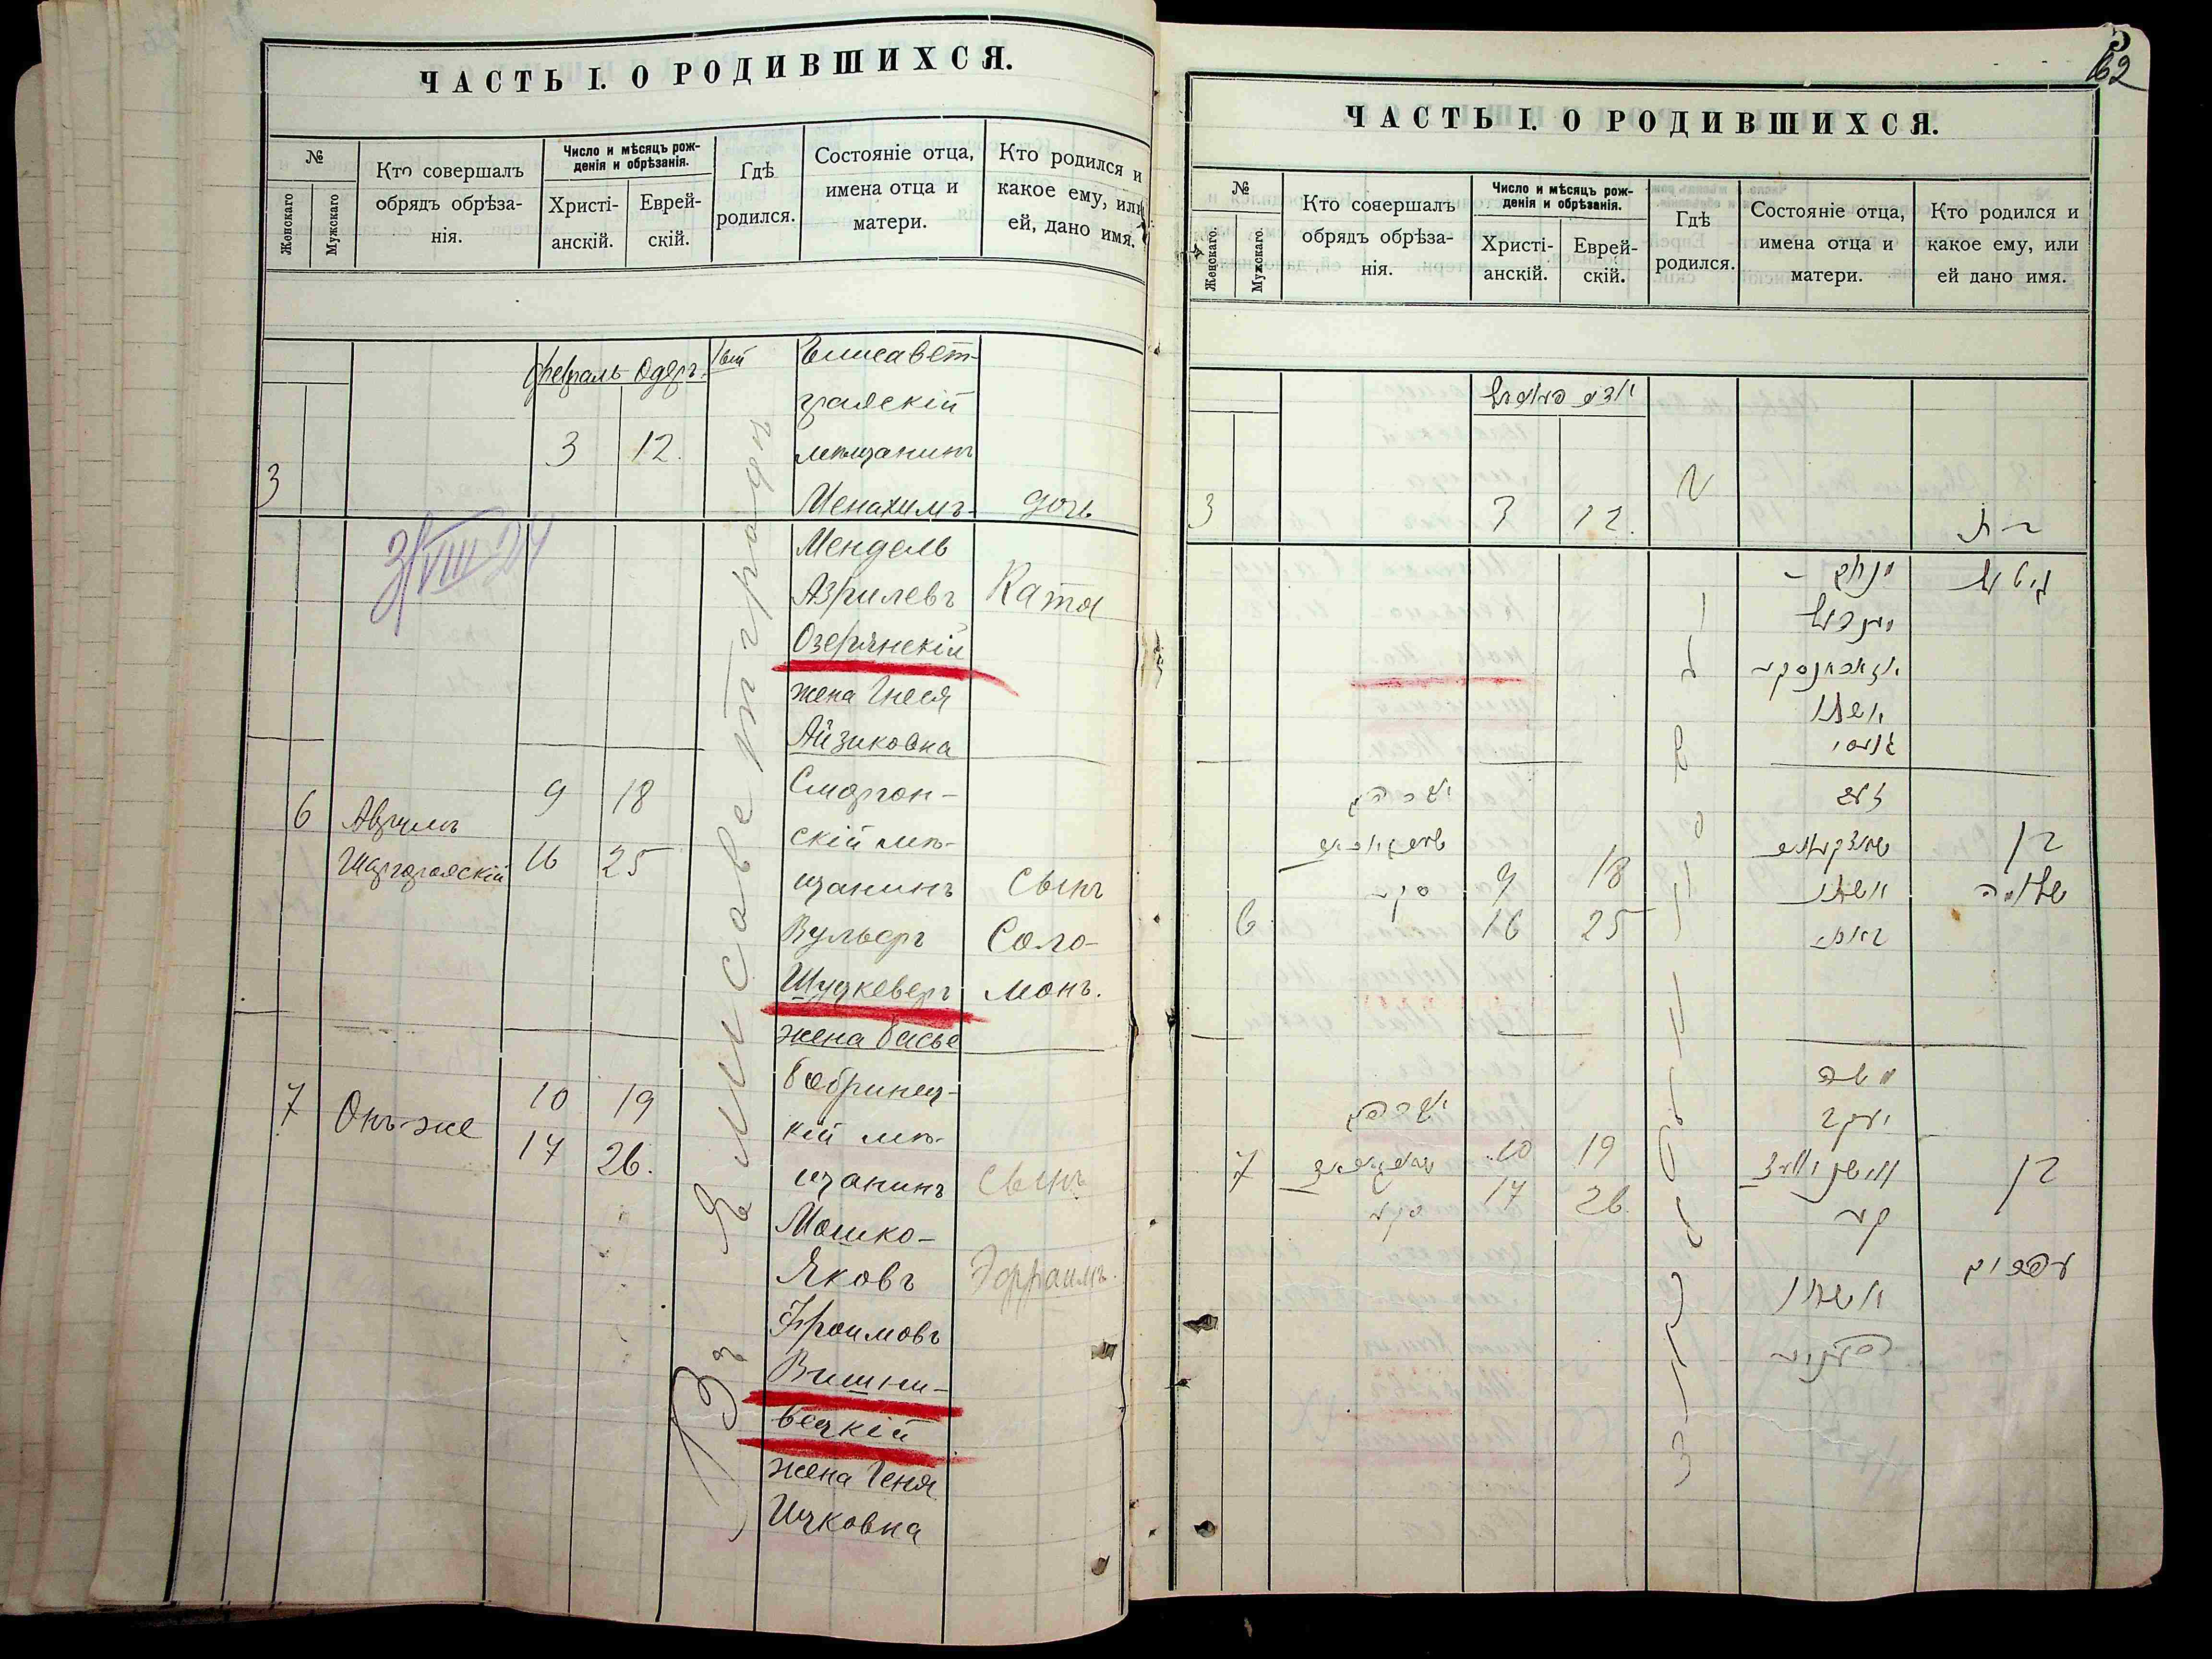 ЧАСТЬ I. О РОДИВШИХСЯ.
№
Женскаго
Мужскаго
Кто совершалъ
обрядъ обрѣза-
нія.
Число и мѣсяцъ рож-
денія и обрѣзанія.
Христі-
анскій.
Еврей-
скій.
Гдѣ
родился.
Состояніе отца,
имена отца и
матери.
Кто родился и
какое ему, или
ей, дано имя.
февраль Одеръ 1ый
3
3
12.
Въ Елисаветградѣ
Елисавет-
градскій
мѣщанинъ
Менахимъ-
Мендель
Азрилевъ
Озерянскій
жена Гнеся
Айзиковна
дочь
Катя
3/VIII 24
6
Аврумъ
Шаргородскій
9
18
16
25
Сморгон-
скій мѣ-
щанинъ
Вульфъ
Шудкеверъ
жена Басье
Сынъ
Соло-
монъ.
7
Онъ-же
10
19
17
26.
Бобринец-
кій мѣ-
щанинъ
Мошко-
Яковъ
Фроимовъ
Вишни-
вецкій
жена Геня
Ицковна
Сынъ
Эфраимъ.
62
ЧАСТЬ I. О РОДИВШИХСЯ.
№
Женскаго.
Мужскаго.
Кто совершалъ
обрядъ обрѣза-
нія.
Число и мѣсяцъ рож-
денія и обрѣзанія.
Христі-
анскій.
Еврей-
скій.
Гдѣ
родился.
Состояніе отца,
имена отца и
матери.
Кто родился и
какое ему, или
ей дано имя.
3
3
12.
בת
מנחם -
מענדעל
ואשתו
6
אברהם
9
18
16
25
זאב
ואשתו
באסי
בן
שלמה
7
אברהם
10
19
17
26.
משה
יעקב
ואשתו
בן
אפרים